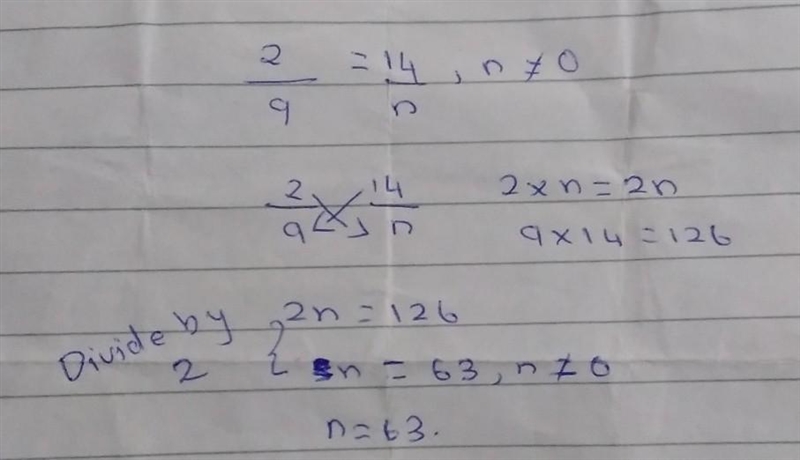 2/9 = 14/n, n ≠ 0
2/9 14/n 2 × n = 2n
9 × 14 = 126
Divide by 2 2n = 126
n = 63, n ≠ 0
n = 63.